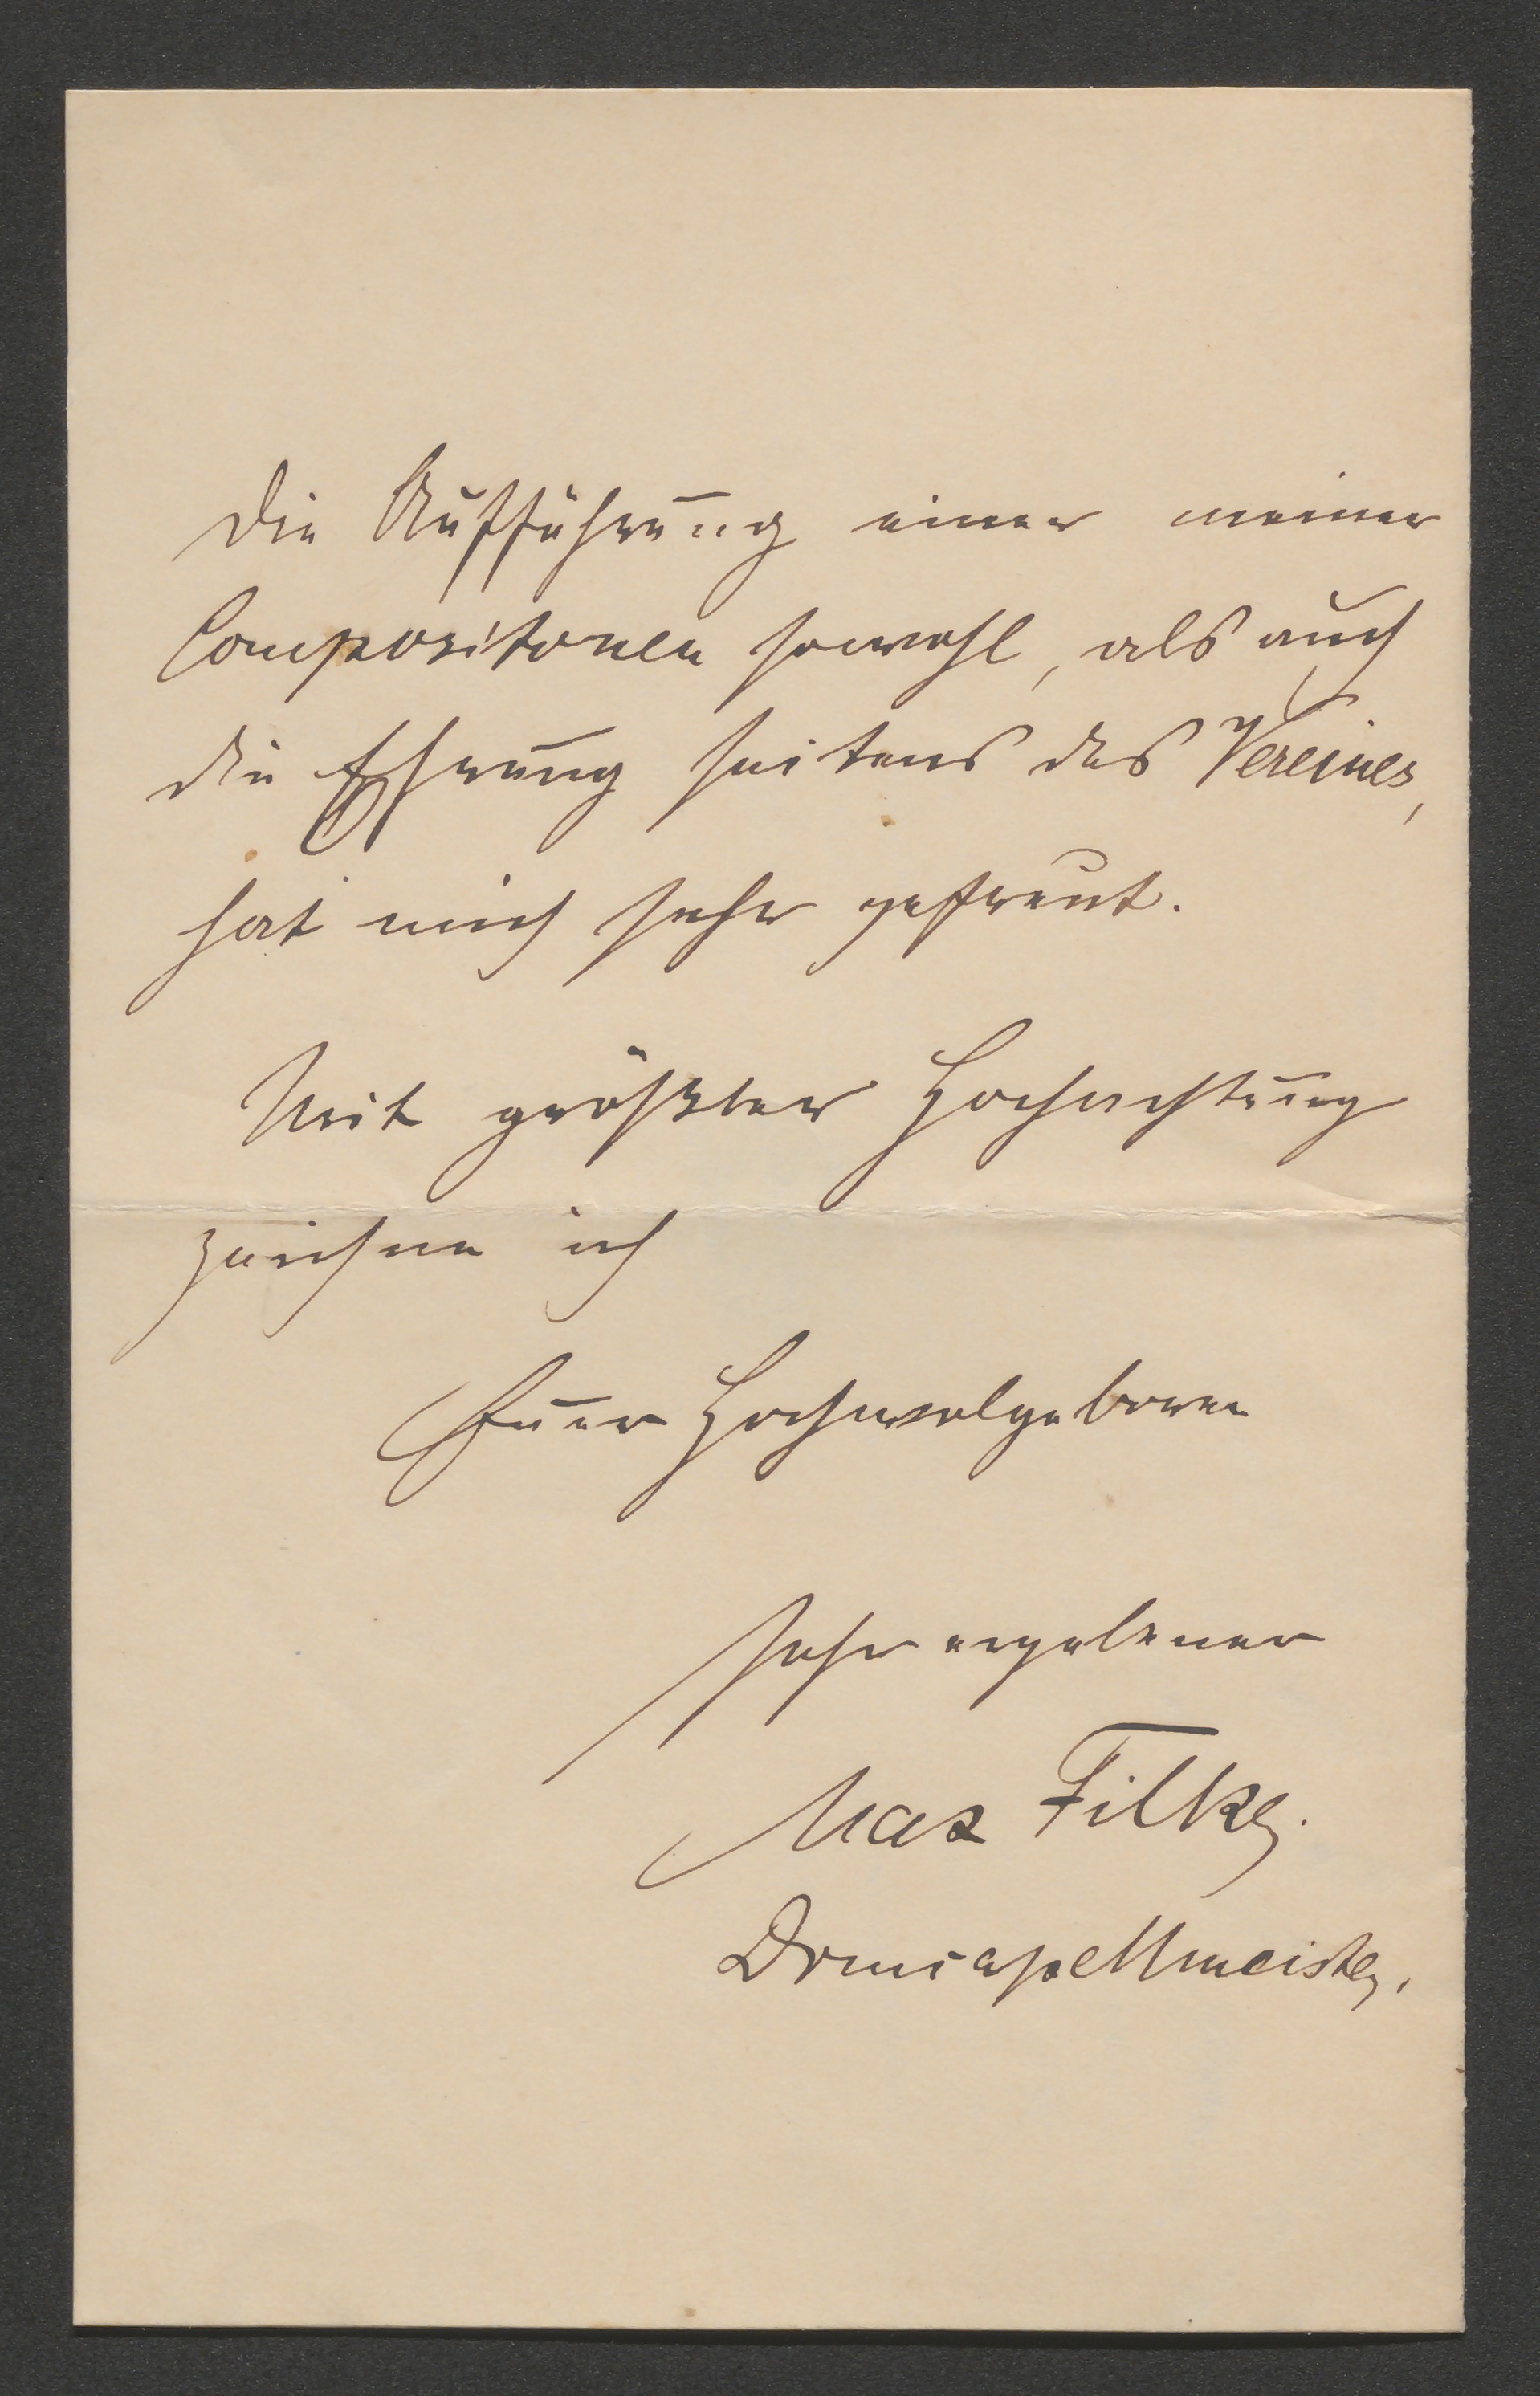 die Aufführung einer meiner
Compositonen sowohl, als auch
die Ehrung seitens des Vereines,
hat mich sehr gefreut.
Mit größter Hochachtung
zeichne ich
Euer Hochwolgeboren
sehr ergebener
Max Filke.
Domcapellmeister.